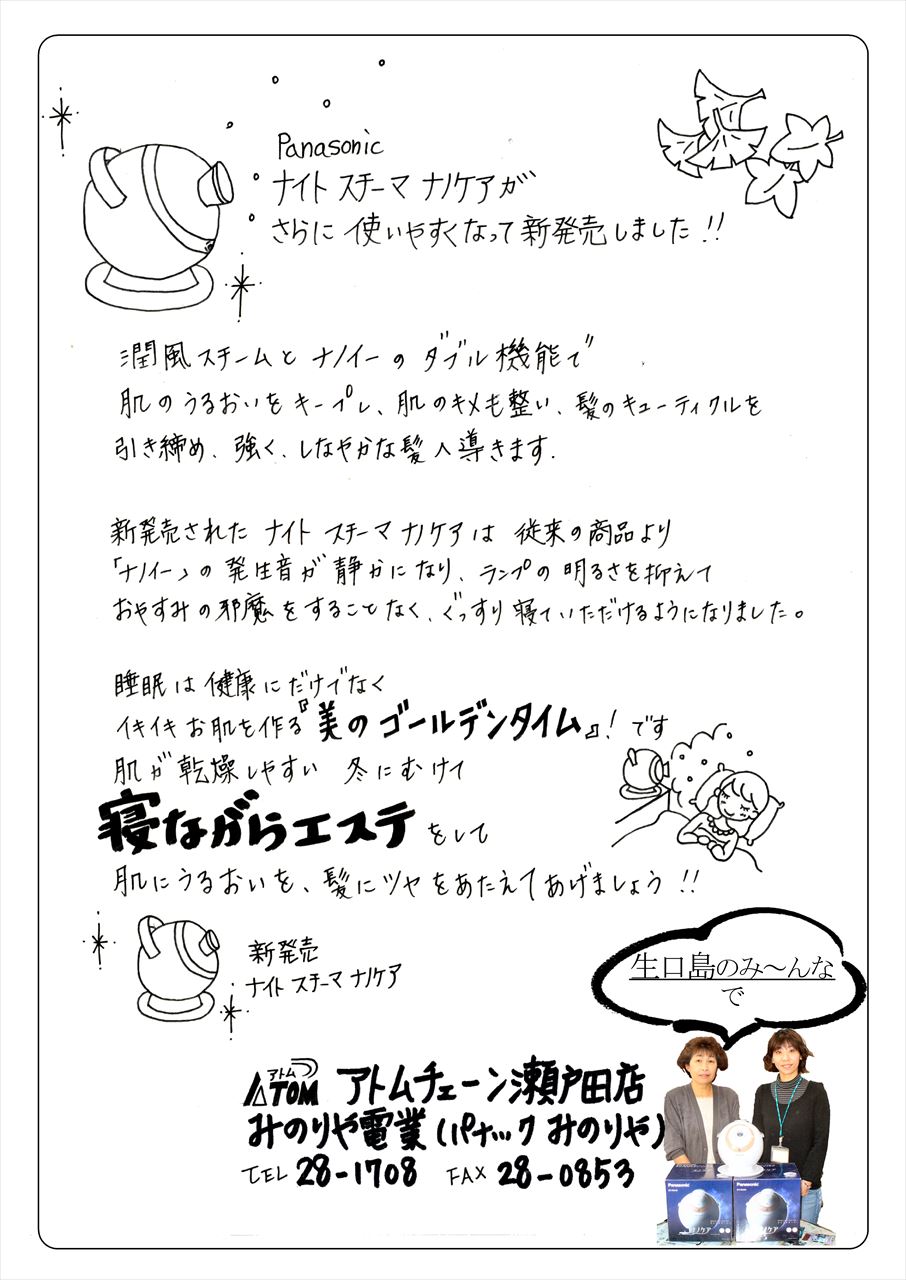 Panasonic
ナイト スチーマ ナノケアが
さらに 使いやすくなって 新発売しました!!
潤風スチームと ナノイーの ダブル機能で
肌のうるおいをキープし、肌のキメも整い、髪のキューティクルを
引き締め、強く、しなやかな髪へ導きます.
新発売された ナイト スチーマ ナノケアは 従来の商品より
「ナノイー」の発生音が静かになり、ランプの明るさを抑えて
おやすみの邪魔をすることなく、ぐっすり寝ていただけるようになりました。
睡眠は健康にだけでなく
イキイキお肌を作る『美のゴールデンタイム』!です
肌が乾燥しやすい 冬にむけて
寝ながらエステをして
肌にうるおいを、髪にツヤをあたえてあげましょう!!
新発売
ナイト スチーマ ナノケア
生口島のみ～んな
で
アトム
ATOM アトムチェーン瀬戸田店
みのりや電業(パナック みのりや)
TEL 28-1708 FAX 28-0853
Panasonic
Panasonic
ナノケア
ナノケア